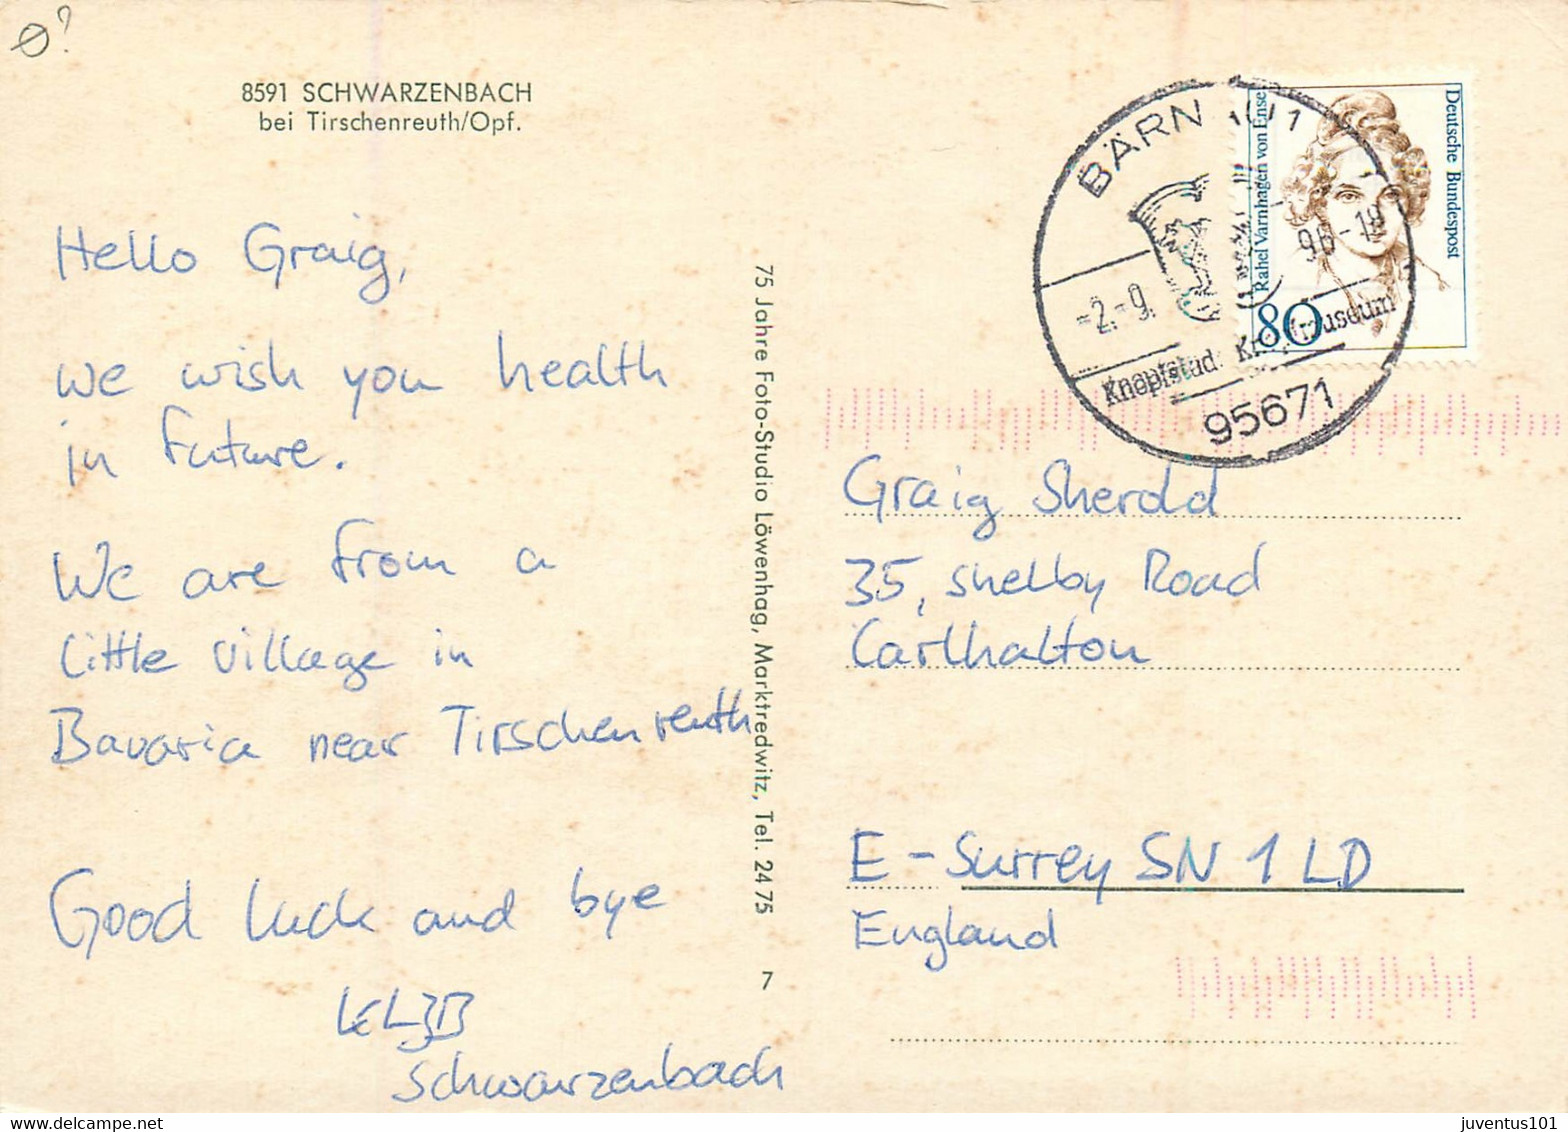 ø?
8591 SCHWARZENBACH
bei Tirschenreuth/Opf.
Hello Graig,
we wish you health
in future.
We are from a
little village in
Bavaria near Tirschenreuth
Good luck and bye
Schwarzenbach
75 Jahre Foto-Studio Löwenhag, Marktredwitz, Tel. 24 75
7
BÄRNAU 1
-2.-9. 96-18
95671
Rahel Varnhagen von Ense
Deutsche Bundespost
80
Graig Sherold
35, Shelby Road
Carlhalton
E - Surrey SN 1 LD
England
www.delcampe.net
juventus101